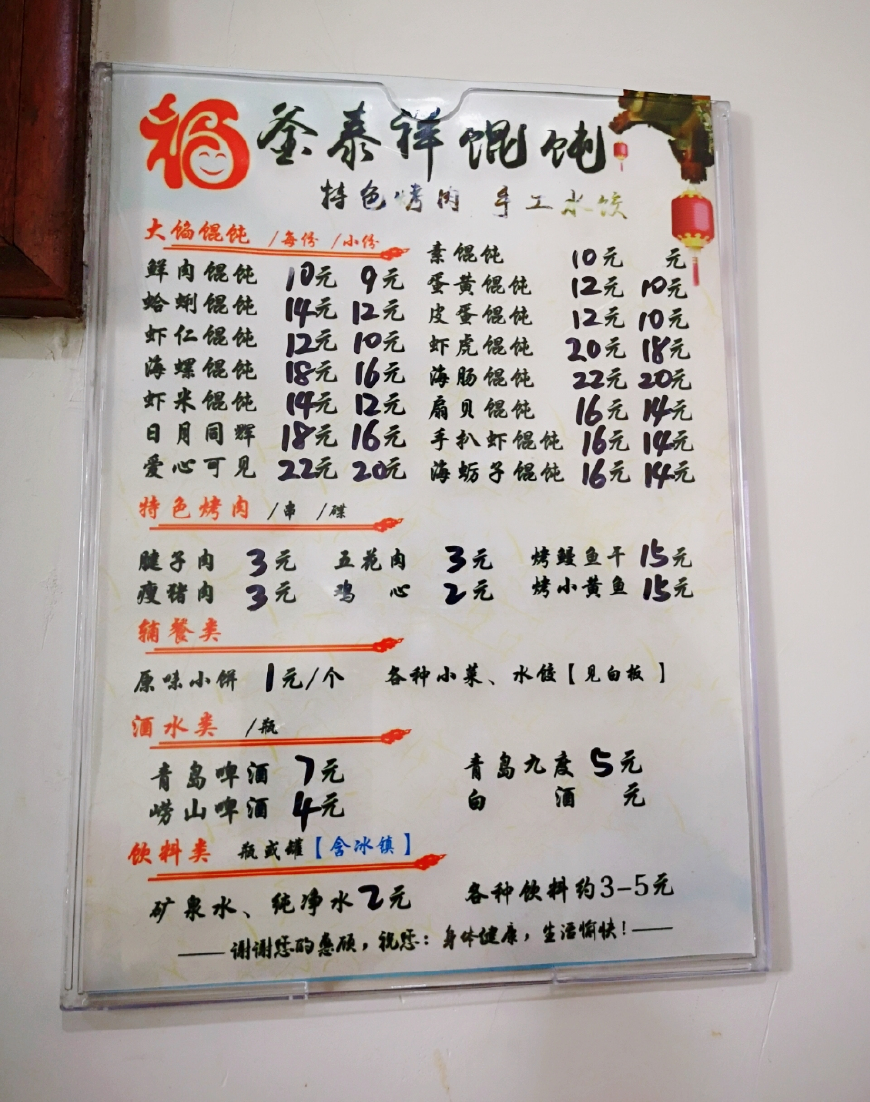 福 釜泰祥馄饨
特色烤肉 手工水饺
大馅馄饨 /每份 /小份
鲜肉馄饨 10元 9元
蛤蜊馄饨 14元 12元
虾仁馄饨 12元 10元
海螺馄饨 18元 16元
虾米馄饨 14元 12元
日月同辉 18元 16元
爱心可见 22元 20元
素馄饨 10元 元
蛋黄馄饨 12元 10元
皮蛋馄饨 12元 10元
虾虎馄饨 20元 18元
海肠馄饨 22元 20元
扇贝馄饨 16元 14元
手扒虾馄饨 16元 14元
海蛎子馄饨 16元 14元
特色烤肉 /串 /碟
腱子肉 3元 五花肉 3元 烤鳗鱼干 15元
瘦猪肉 3元 鸡心 2元 烤小黄鱼 15元
辅餐类
原味小饼 1元/个 各种小菜、水饺【见白板】
酒水类 /瓶
青岛啤酒 7元 青岛九度 5元
崂山啤酒 4元 白酒 元
饮料类 瓶或罐【含冰镇】
矿泉水、纯净水2元 各种饮料约3-5元
——谢谢您的惠顾，祝您：身体健康，生活愉快！——